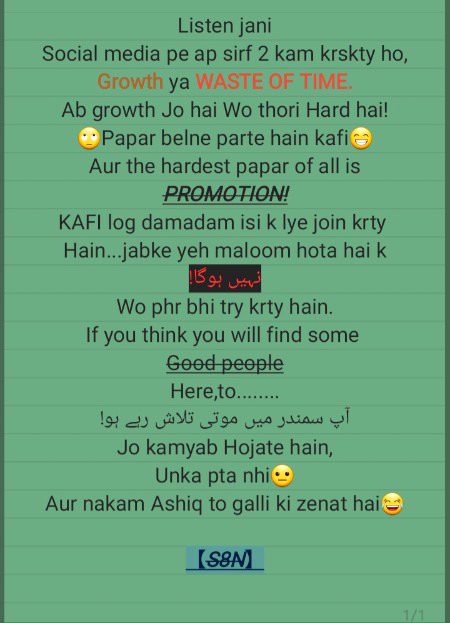 Listen jani
Social media pe ap sirf 2 kam krskty ho,
Growth ya WASTE OF TIME.
Ab growth Jo hai Wo thori Hard hai!
🙄Papar belne parte hain kafi😁
Aur the hardest papar of all is
PROMOTION!
KAFI log damadam isi k lye join krty
Hain...jabke yeh maloom hota hai k
نہیں ہوگا!
Wo phr bhi try krty hain.
If you think you will find some
Good people
Here,to........
آپ سمندر میں موتی تلاش رہے ہو!
Jo kamyab Hojate hain,
Unka pta nhi😐
Aur nakam Ashiq to galli ki zenat hai😂
【S8N】
1/1